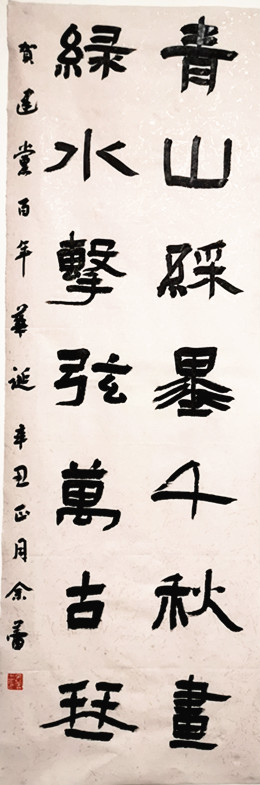 青山綵墨千秋畫
緑水擊弦萬古琴
賀建黨百年華誕辛丑正月余